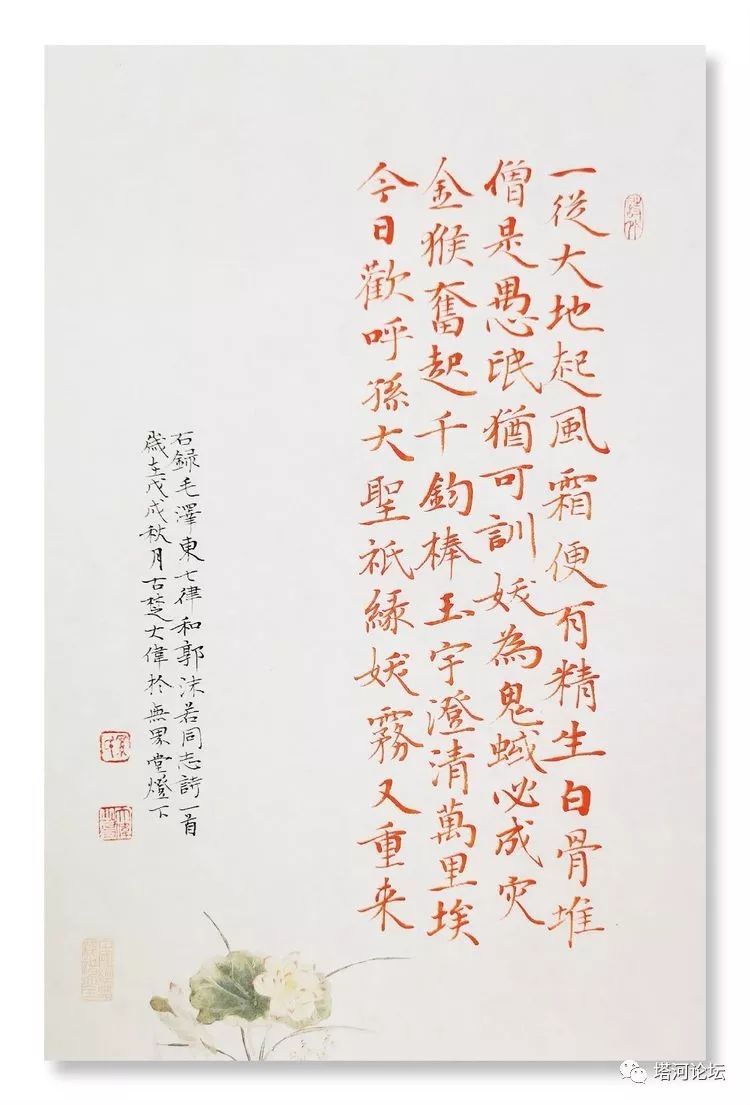 一從大地起風霜便有精生白骨堆
僧是愚氓猶可訓妖為鬼蜮必成灾
金猴奮起千鈞棒玉宇澄清萬里埃
今日歡呼孫大聖祇緣妖霧又重来
右録毛澤東七律和郭沫若同志詩一首
歲在戊戌秋月古楚大偉於無界堂燈下
塔河论坛